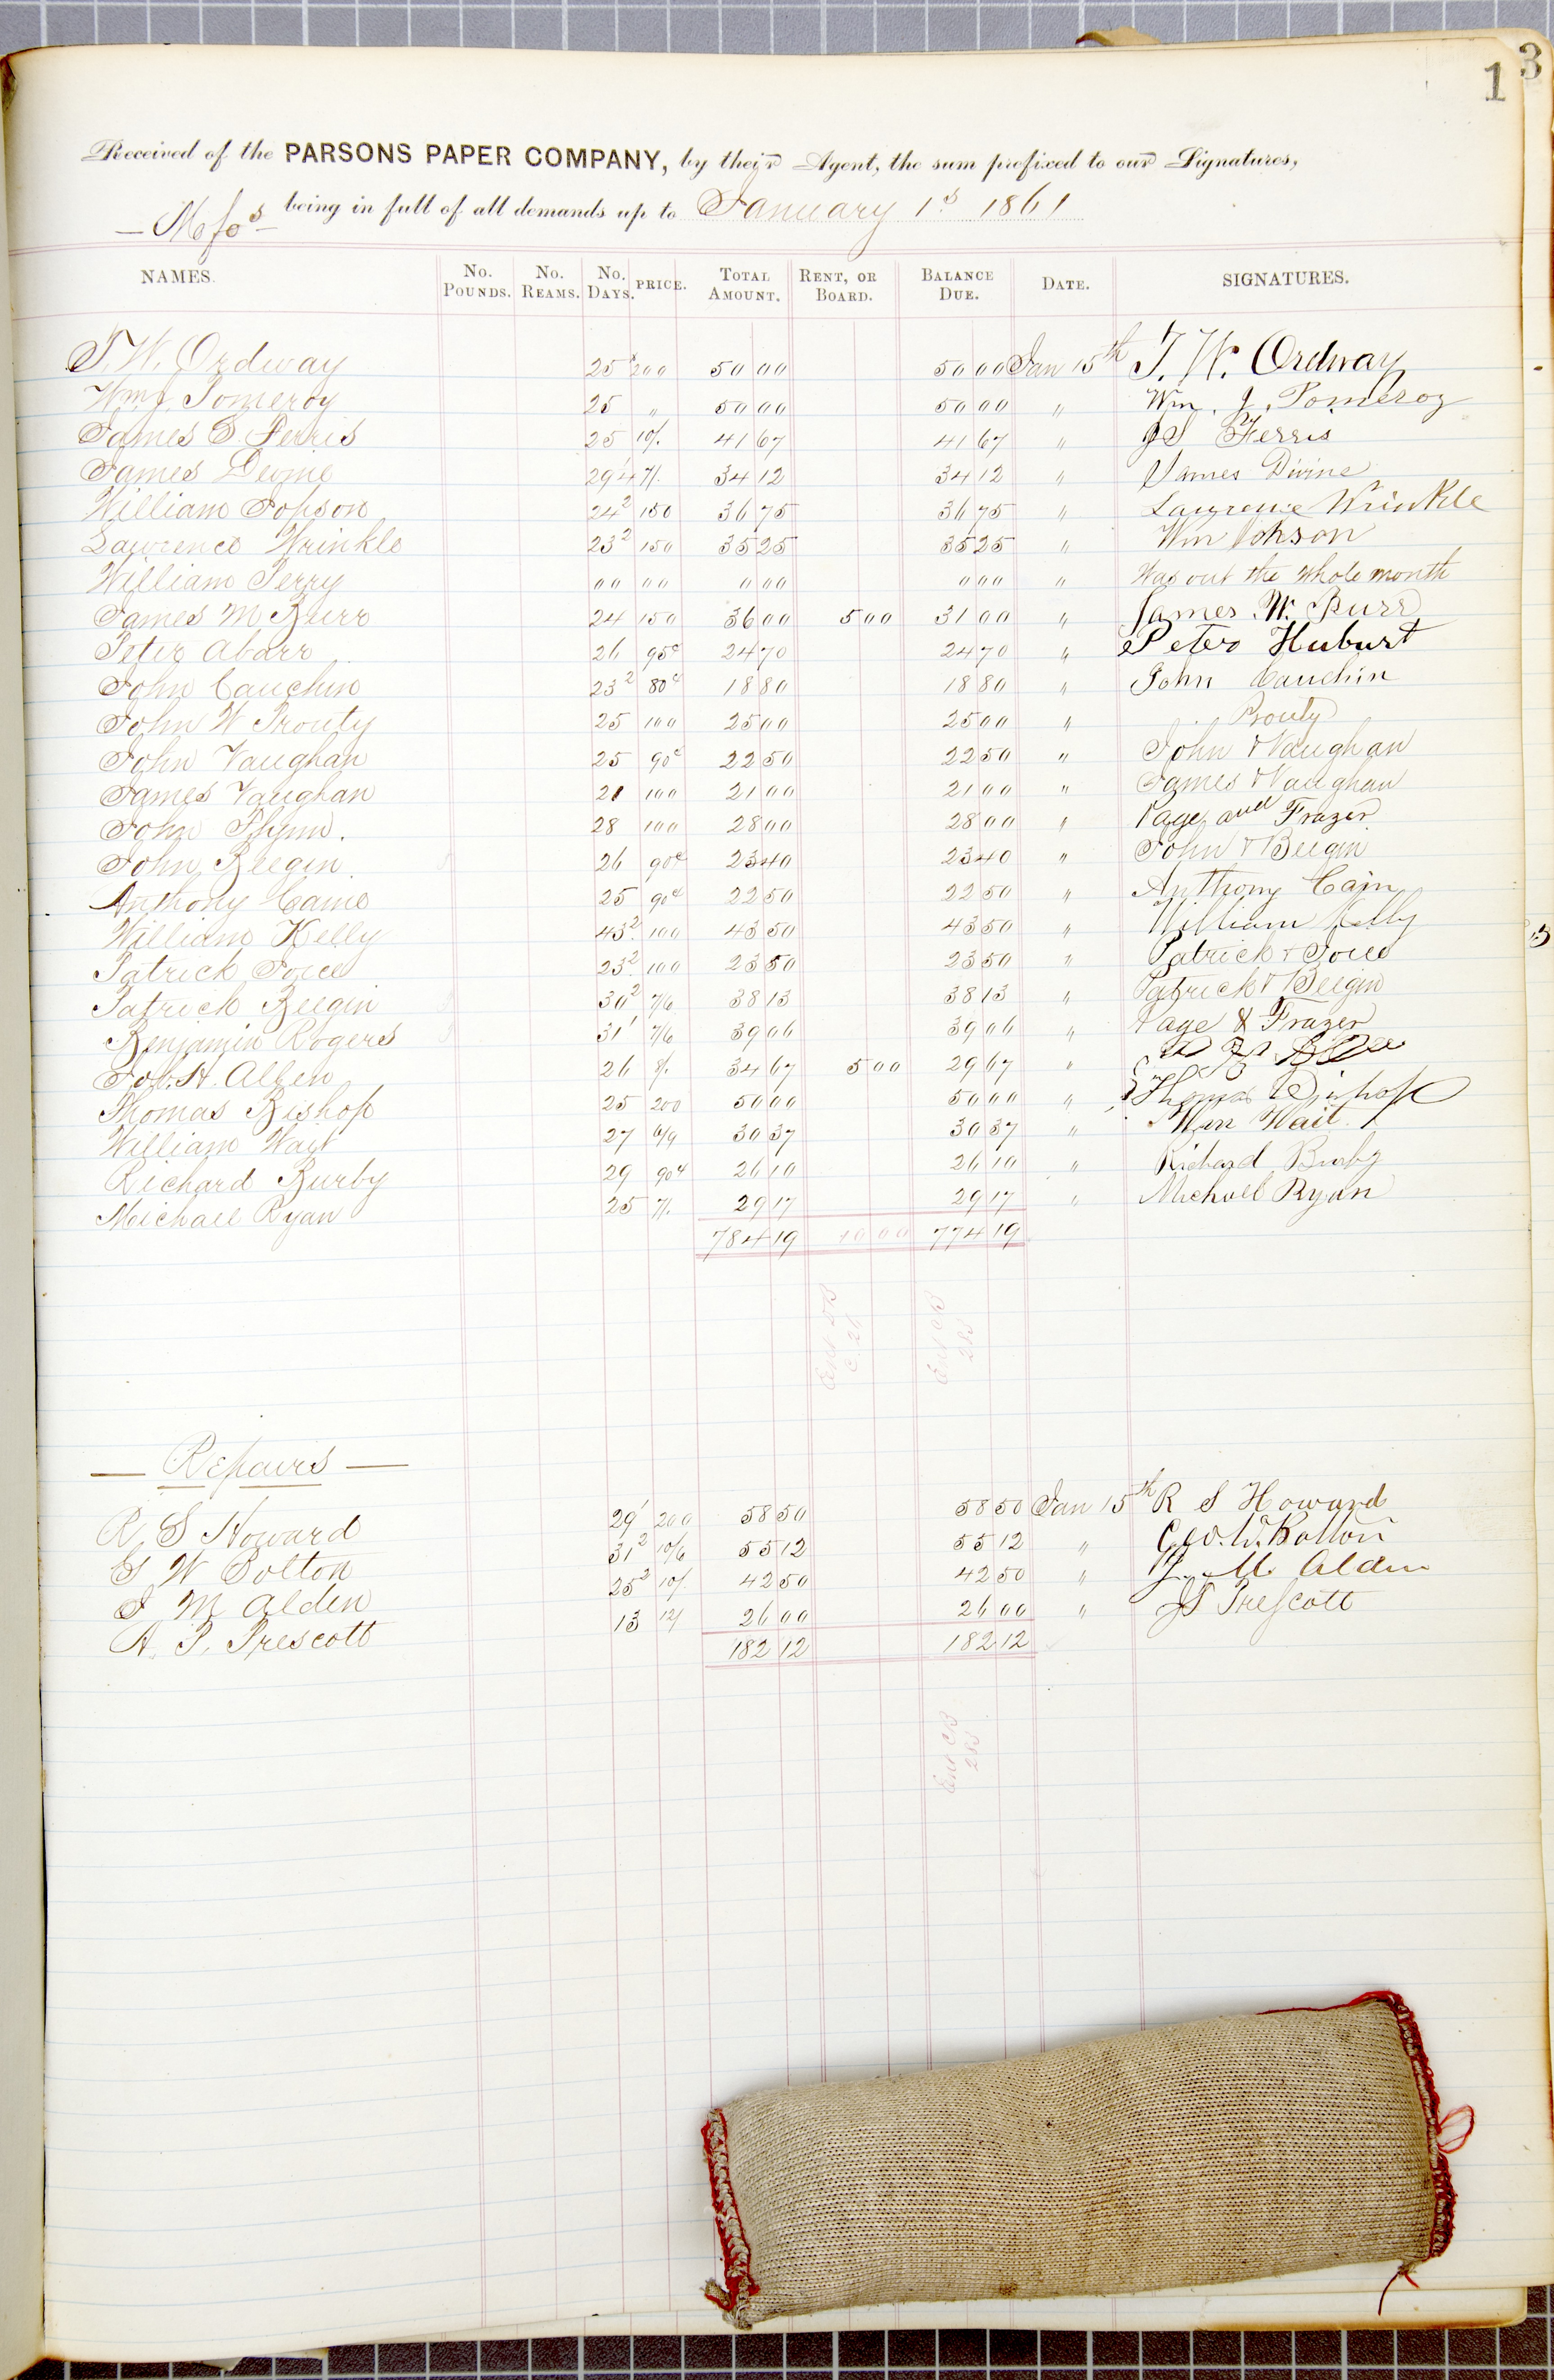 1 3
Received of the PARSONS PAPER COMPANY, by their Agent, the sum prefixed to our Signatures,
being in full of all demands up to January 1s 1861
NAMES. No. Pounds. No. Reams. No. Days. PRICE. Total Amount. Rent, or Board. Balance Due. Date. SIGNATURES.
T. W. Ordway 25 200 50 00 50 00 Jan 15th T. W. Ordway
Wm J. Pomeroy 25 " 50 00 50 00 " Wm. J. Pomeroy
James S. Ferris 25 10/. 41 67 41 67 " J S Ferris
James Devine 29¼ 7/. 34 12 34 12 " James Divine
William Jopson 24² 150 36 75 36 75 " Lawrence Wrinkle
Lawrence Wrinkle 23² 150 35 25 35 25 " Wm Jobson
William Perry 00 00 0 00 0 00 " Was out the whole month
James M Burr 24 150 36 00 5 00 31 00 " James. W. Burr
Peter Abarr 26 95c 24 70 24 70 " Peter Huburt
John Cauchin 23² 80c 18 80 18 80 " John Cauchin
John W Prouty 25 100 25 00 25 00 " Prouty
John Vaughan 25 90c 22 50 22 50 " John + Vaughan
James Vaughan 21 100 21 00 21 00 " James + Vaughan
John Flynn. 28 100 28 00 28 00 " Page and Frazer
John Beegin. 26 90c 23 40 23 40 " John + Beegin
Anthony Came 25 90c 22 50 22 50 " Anthony Cain
William Kelly 43² 100 43 50 43 50 " William Kelly
Patrick Joice 23² 100 23 50 23 50 " Patrick + Joice
Patrick Beegin 30² 7/6 38 13 38 13 " Patrick + Beegin
Benjamin Rogers 31' 7/6 39 06 39 06 " Page & Frazer
Job. H. Allen 26 8/. 34 67 5 00 29 67 "
Thomas Bishop 25 200 50 00 50 00 " Thomas Bishop
William Wait 27 6/9 30 37 30 37 " Wm Wait.
Richard Burby 29 90c 26 10 26 10 " Richard Burby
Michael Ryan 25 7/. 29 17 29 17 " Michael Ryan
784 19 10 00 774 19
Ent CB
283
— Repairs —
R S Howard 29' 200 58 50 58 50 Jan 15th R S Howard
G W Bolton 31² 10/6 55 12 55 12 " Geo. W. Bolton
J M Alden 25² 10/. 42 50 42 50 " J. M. Alden
A. P. Prescott 13 12/ 26 00 26 00 " Prescott
182 12 182 12
Ent CB
283